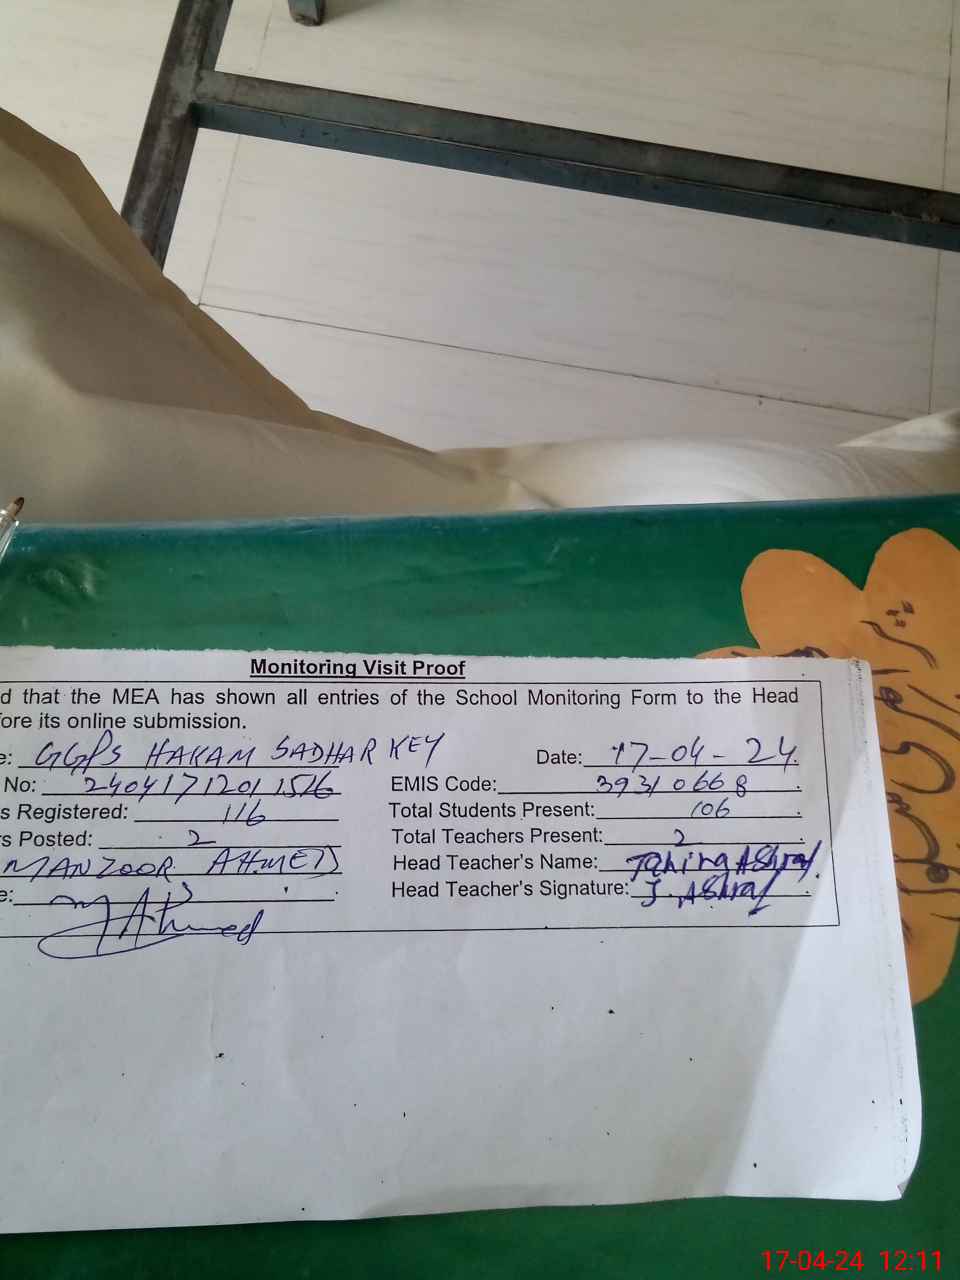 Monitoring Visit Proof
d that the MEA has shown all entries of the School Monitoring Form to the Head
fore its online submission.
e: GGPS HAKAM SADHAR KEY Date: 17-04-24.
No: 24041712011516 EMIS Code: 39310668.
s Registered: 116 Total Students Present: 106.
rs Posted: 2 Total Teachers Present: 2.
MANZOOR AHMED Head Teacher's Name: Tahira Ashraf.
e: M Ahmed Head Teacher's Signature: T. Ashraf
17-04-24 12:11